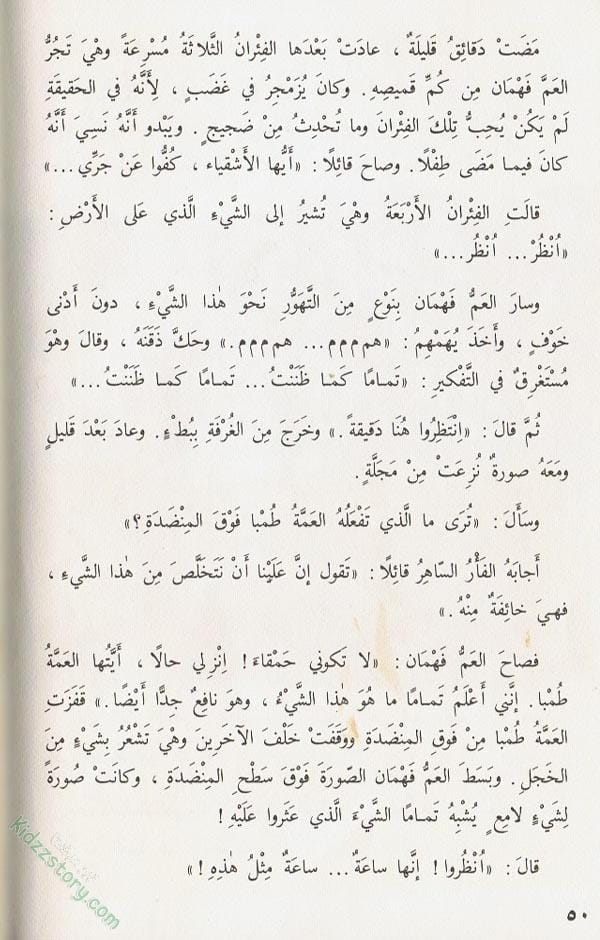 مَضَتْ دَقائِقُ قَليلَةٌ ، عادَتْ بَعْدَها الفِئْرانُ الثَّلاثَةُ مُسْرِعَةً وهْيَ تَجُرُّ
العَمَّ فَهْمَان مِن كُمِّ قَميصِهِ. وكانَ يُزَمْجِرُ في غَضَبٍ ، لِأَنَّهُ في الحَقيقَةِ
لَمْ يَكُنْ يُحِبُّ تِلْكَ الفِئْرانَ وما تُحْدِثُ مِنْ ضَجيجٍ. ويَبْدو أَنَّهُ نَسِيَ أَنَّهُ
كانَ فيمـا مَضَى طِفْلًا. وصاحَ قائِلًا: «أَيُّها الأَشْقياء ، كُفُّوا عَنْ جَرِّي...»
قالَتِ الفِئْرانُ الأَرْبَعَةُ وهْيَ تُشيرُ إلى الشَّيْءِ الَّذي عَلى الأَرْضِ:
«اُنْظُرْ... اُنْظُر...»
وسارَ العَمُّ فَهْمَان بِنَوْعٍ مِنَ التَّهَوُّرِ نَحْوَ هٰذا الشَّيْءِ ، دونَ أَدْنى
خَوْفٍ ، وأَخَذَ يُهَمْهِمُ: «هم م م م... هم م م م.» وحَكَّ ذَقَنَهُ ، وقالَ وهْوَ
مُسْتَغْرِقٌ في التَّفْكيرِ: «تَمـامًا كَمـا ظَنَنْتُ... تَمـامًا كَمـا ظَنَنْتُ...»
ثُمَّ قالَ: «اِنْتَظِرُوا هُنَا دَقيقةً.» وخَرَجَ مِنَ الغُرْفَةِ بِبُطْءٍ. وعادَ بَعْدَ قَليلٍ
ومَعَهُ صورَةٌ نُزِعَتْ مِنْ مَجَلَّةٍ.
وسَأَلَ: «تُرَى ما الَّذي تَفْعَلُهُ العَمَّةُ طُمْبا فَوْقَ المِنْضَدَةِ؟»
أَجابَهُ الفَأْرُ السّاهِرُ قائِلًا: «تَقول إنَّ عَلَيْنا أَنْ نَتَخَلَّصَ مِنَ هٰذا الشَّيْءِ ،
فهيَ خائِفَةٌ مِنْهُ.»
فصاحَ العَمُّ فَهْمَان: «لا تَكوني حَمْقاءَ! اِنْزِلي حالًا ، أَيَّتُها العَمَّةُ
طُمْبا. إنَّني أَعْلَمُ تَمـامًا ما هُوَ هٰذا الشَّيْءُ ، وهوَ نافِعٌ جِدًّا أَيْضًا.» قَفَزَتِ
العَمَّةُ طُمْبا مِنْ فَوقِ المِنْضَدَةِ ووَقَفَتْ خَلْفَ الآخَرينَ وهْيَ تَشْعُرُ بِشَيْءٍ مِنَ
الخَجَلِ. وبَسَطَ العَمُّ فَهْمَان الصّورَةَ فَوْقَ سَطْحِ المِنْضَدَةِ ، وكانَتْ صُورَةً
لِشَيْءٍ لامِعٍ يُشْبِهُ تَمـامًا الشَّيْءَ الَّذي عَثَروا عَلَيْهِ!
قالَ: «اُنْظُروا! إنَّها ساعَةٌ... ساعَةٌ مِثْلُ هٰذِهِ!»
٥٠
Kidzzstory.com